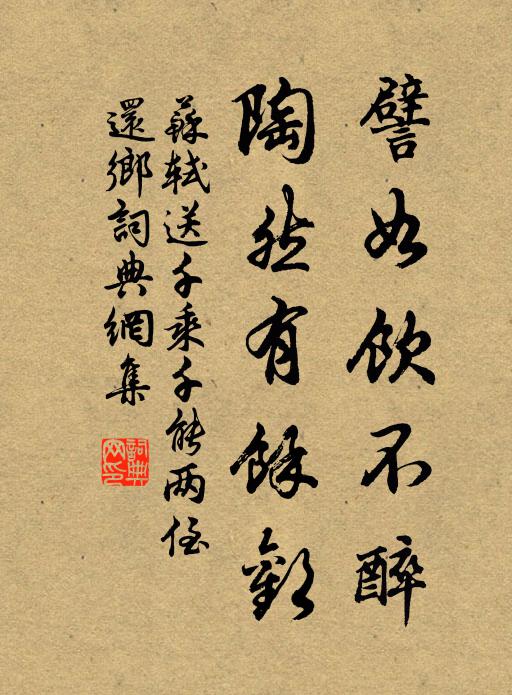 譬如飲不醉
陶然有餘歡
蘇軾送千乘千能兩侄
還鄉詞典網集
詞典
网印